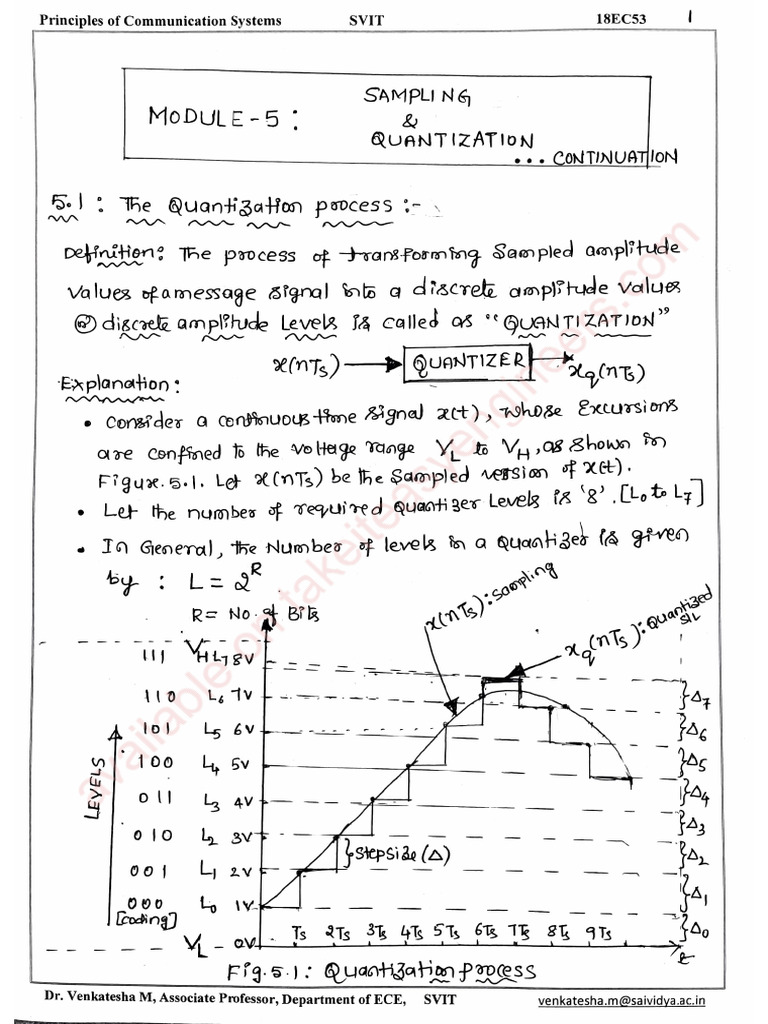 Principles of Communication Systems SVIT 18EC53 1
MODULE-5: SAMPLING
&
QUANTIZATION
... CONTINUATION
5.1: The Quantization process :-
Definition: The process of transforming Sampled amplitude
Values of a message signal into a discrete amplitude values
discrete amplitude Levels is called as "QUANTIZATION"
x(nTs) QUANTIZER xq(nTs)
Explanation:
• Consider a continuous time signal x(t), whose Excursions
are confined to the voltage range VL to VH, as shown in
Figure.5.1. Let x(nTs) be the Sampled version of x(t).
• Let the number of required Quantizer Levels is '8'. [L0 to L7]
• In General, the Number of levels in a Quantizer is given
by : L = 2^R
R = No. of Bits
x(nTs): Sampling
xq(nTs): Quantized
VH
111 L7 8V
110 L6 7V Δ7
101 L5 6V Δ6
100 L4 5V Δ5
011 L3 4V Δ4
010 L2 3V Δ3
Stepsize (Δ)
001 L1 2V Δ2
000 L0 1V Δ1
[coding]
LEVELS
VL 0V Δ0
Ts 2Ts 3Ts 4Ts 5Ts 6Ts 7Ts 8Ts 9Ts t
Fig.5.1: Quantization process
Dr. Venkatesha M, Associate Professor, Department of ECE, SVIT venkatesha.m@saividya.ac.in
available on takeiteasyengineers.com